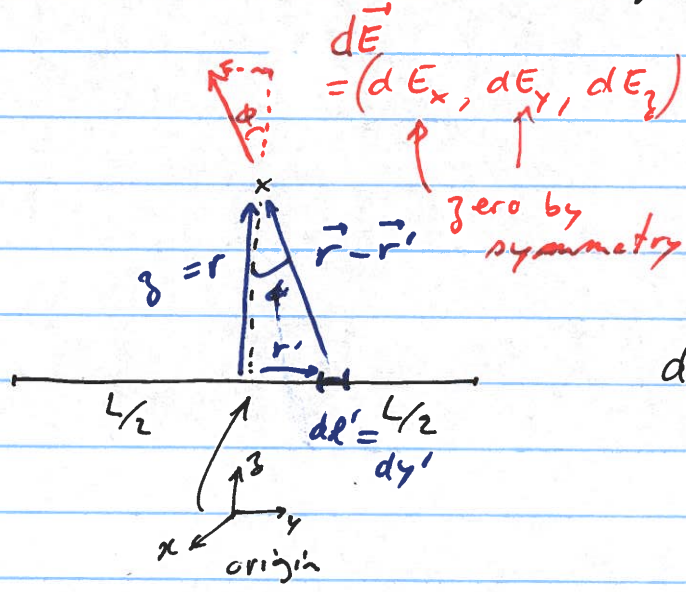 dE⃗
= (dEₓ, dE_y, dE_z)
ϕ
x
zero by
symmetry
z = r
r⃗ - r⃗'
ϕ
r'
d
L/2
dl' =
dy'
L/2
z
y
x
origin